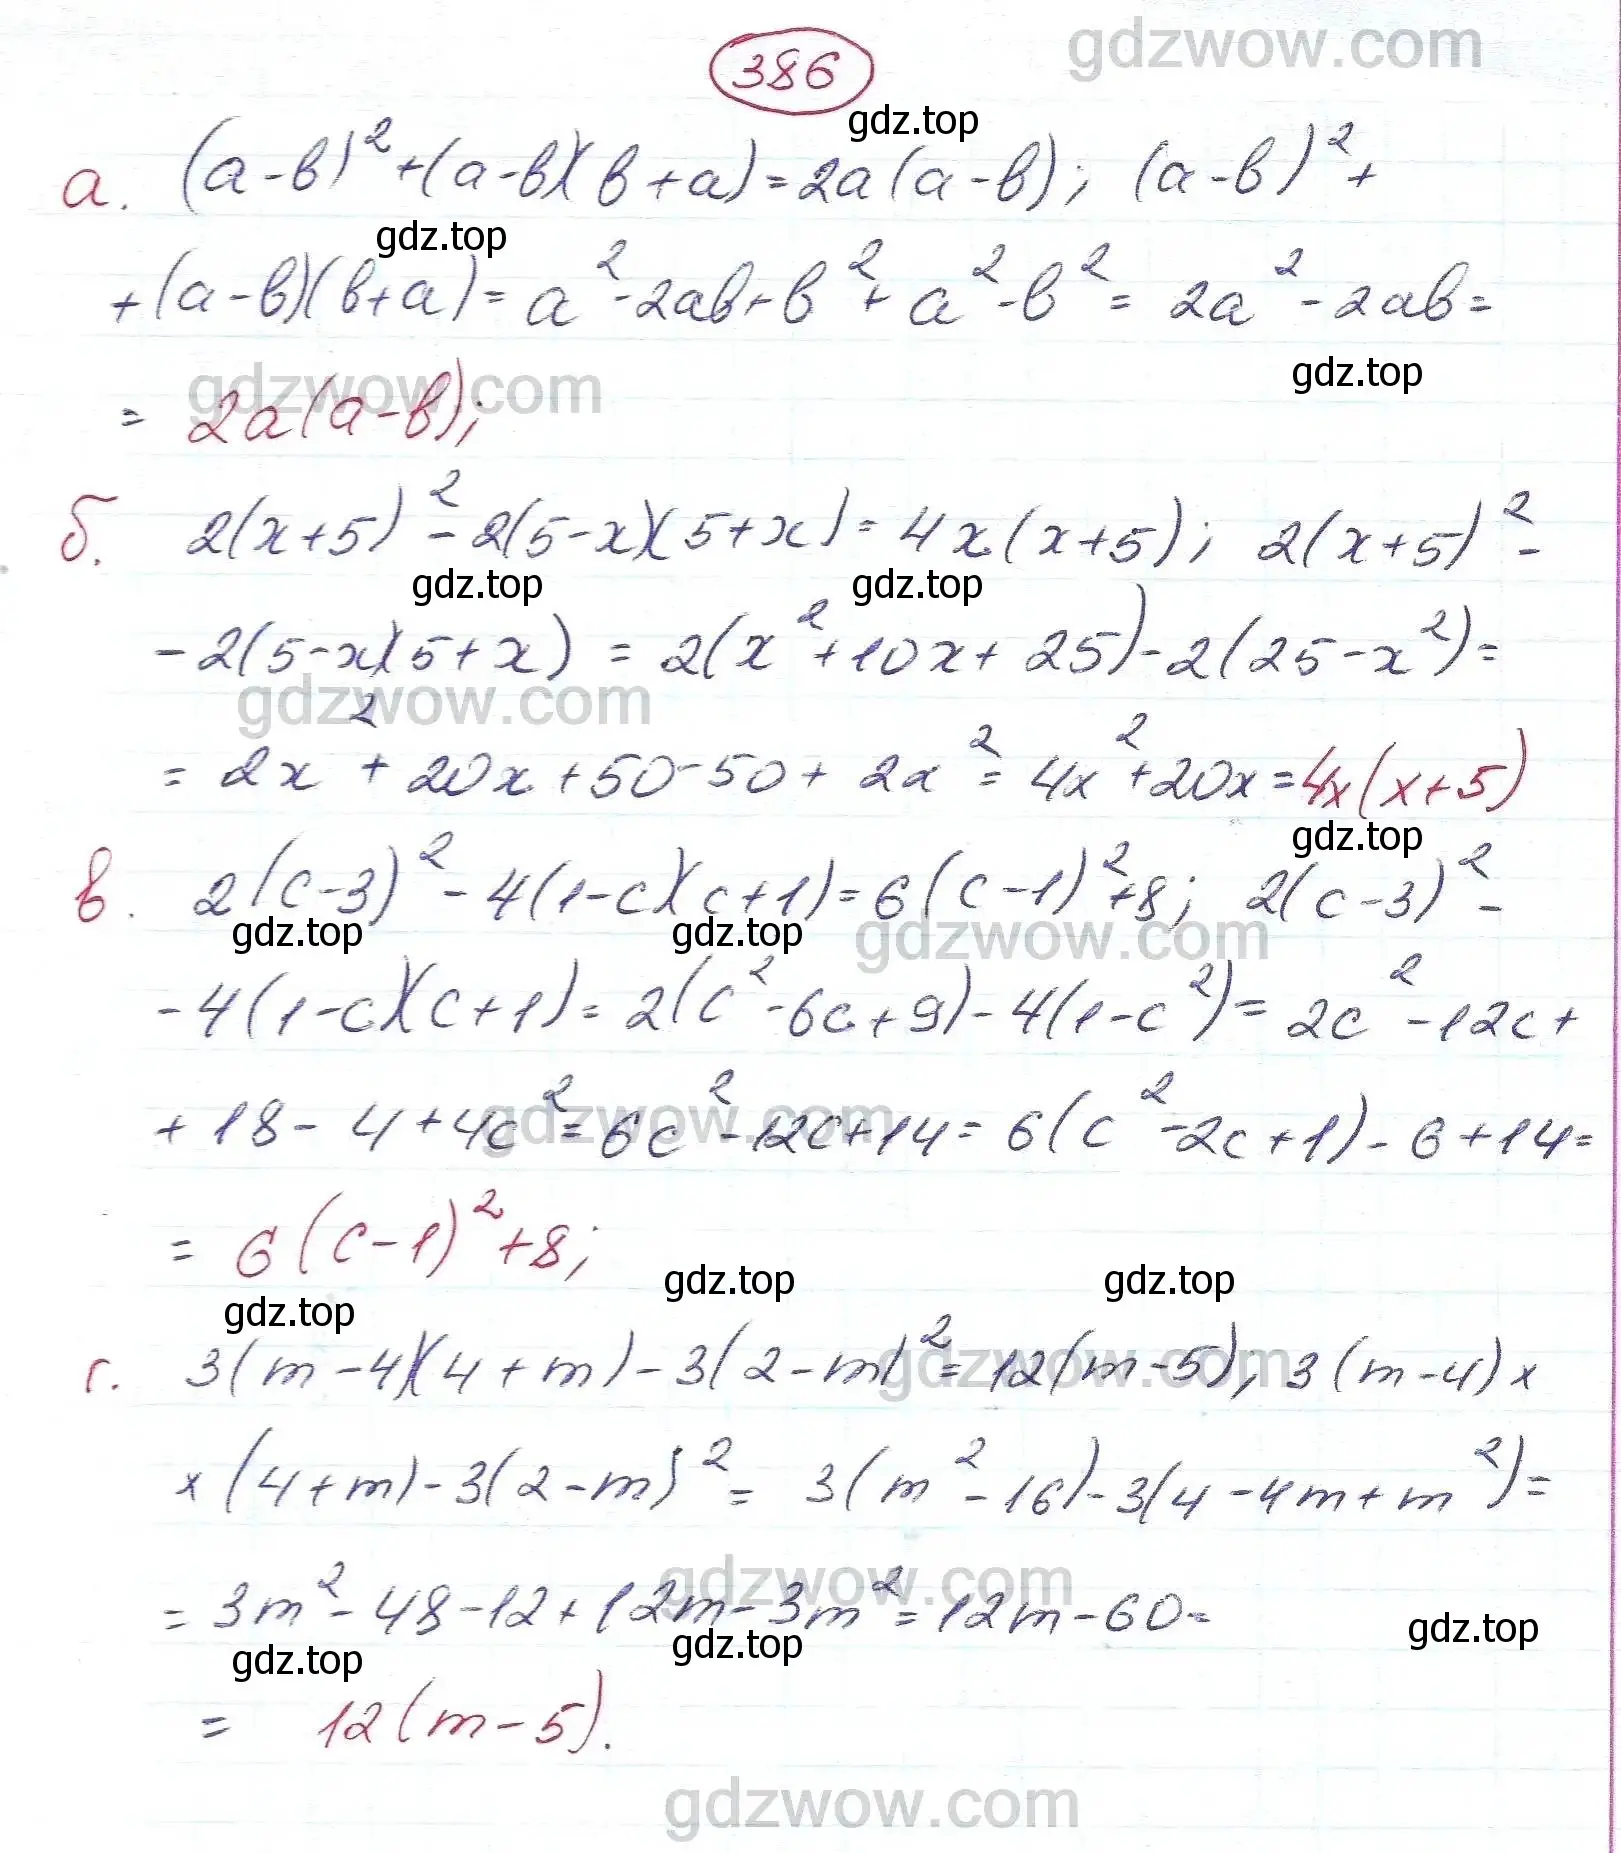 gdzwow.com
386
gdz.top
а. (a-b)² + (a-b)(b+a) = 2a(a-b); (a-b)² +
gdz.top
+ (a-b)(b+a) = a² - 2ab + b² + a² - b² = 2a² - 2ab =
gdz.top
gdzwow.com
= 2a(a-b);
б. 2(x+5)² - 2(5-x)(5+x) = 4x(x+5); 2(x+5)² -
gdz.top gdz.top
- 2(5-x)(5+x) = 2(x² + 10x + 25) - 2(25 - x²) =
gdzwow.com
= 2x² + 20x + 50 - 50 + 2x² = 4x² + 20x = 4x(x+5)
gdz.top
в. 2(c-3)² - 4(1-c)(c+1) = 6(c-1)² + 8; 2(c-3)² -
gdz.top gdz.top gdzwow.com
- 4(1-c)(c+1) = 2(c² - 6c + 9) - 4(1-c²) = 2c² - 12c +
gdzwow.com
+ 18 - 4 + 4c² = 6c² - 12c + 14 = 6(c² - 2c + 1) - 6 + 14 =
= 6(c-1)² + 8;
gdz.top gdz.top
gdz.top
г. 3(m-4)(4+m) - 3(2-m)² = 12(m-5); 3(m-4) ×
gdzwow.com
× (4+m) - 3(2-m)² = 3(m² - 16) - 3(4 - 4m + m²) =
gdzwow.com
= 3m² - 48 - 12 + 12m - 3m² = 12m - 60 =
gdz.top gdz.top gdz.top
= 12(m-5).
gdzwow.com